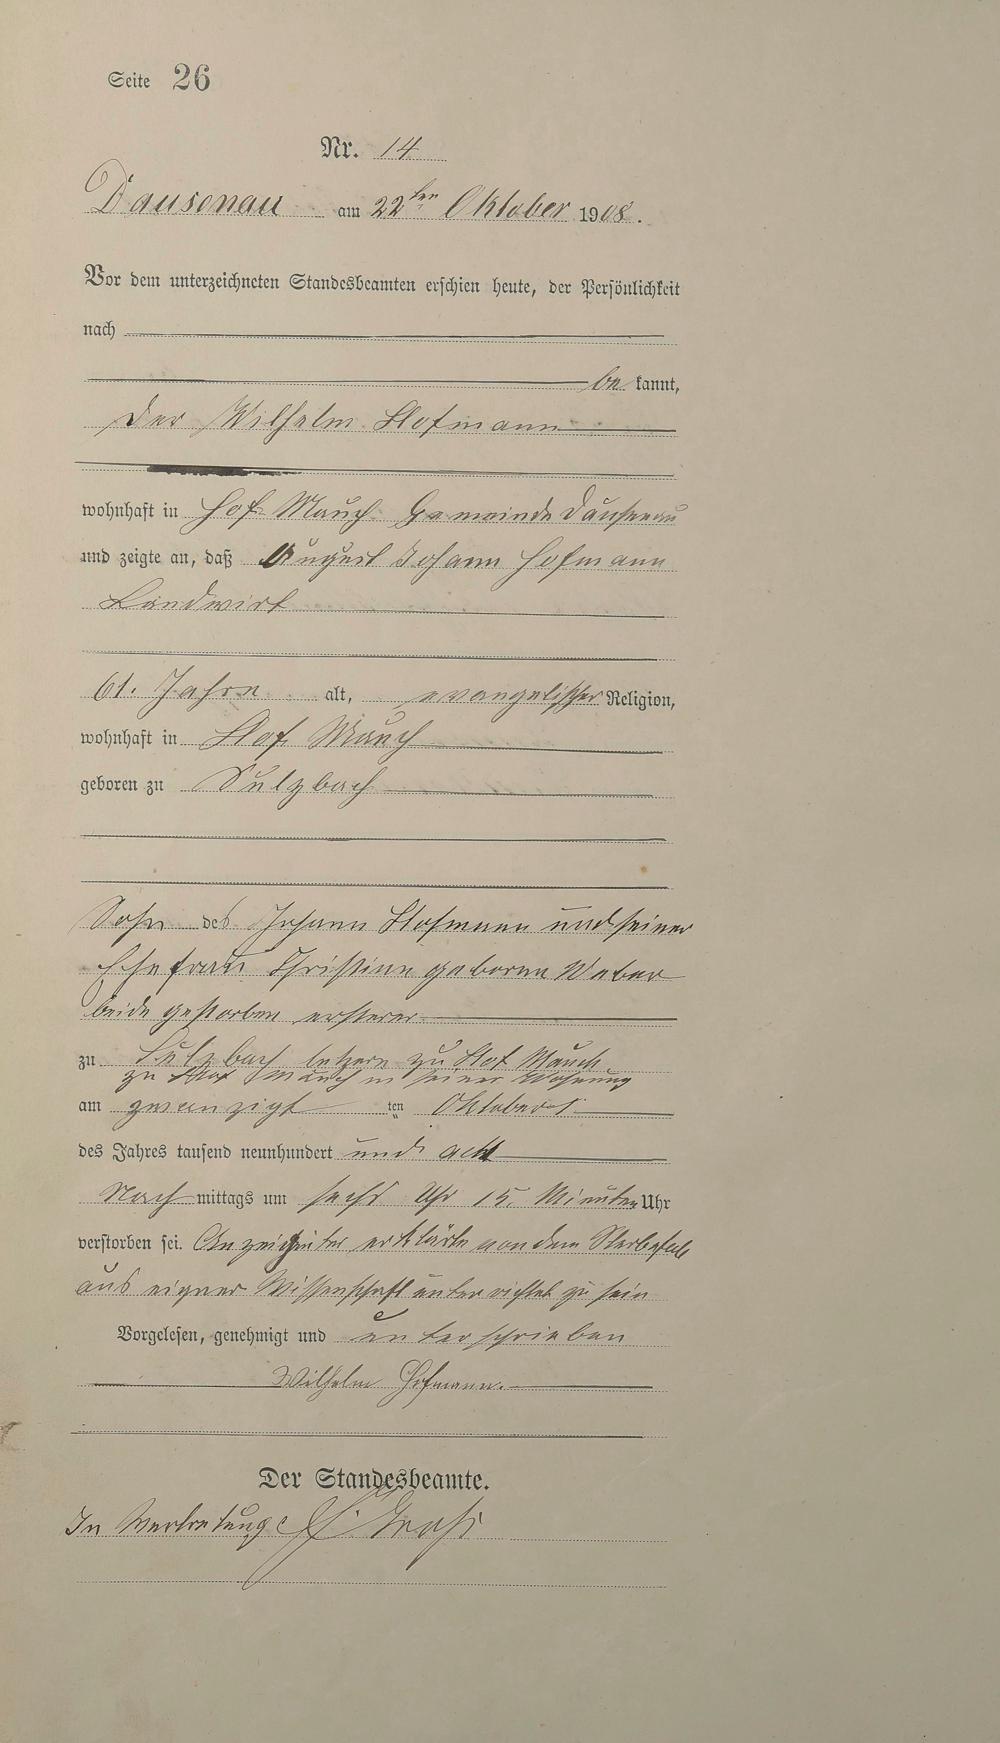 Seite 26
Nr. 14
Dausenau am 22ten Oktober 1908.
Vor dem unterzeichneten Standesbeamten erschien heute, der Persönlichkeit
nach
be kannt,
der Wilhelm Hofmann
wohnhaft in Hof Mauch Gemeinde Dausenau
und zeigte an, daß August Johann Hofmann
Landwirt
61. Jahre alt, evangelischer Religion,
wohnhaft in Hof Mauch
geboren zu Sulzbach
Sohn des Johann Hofmann und seiner
Ehefrau Christine geborne Weber
beide gestorben ersterer
zu Sulzbach letzere zu Hof Mauch
zu Hof Mauch in seiner Wohnung
am zwanzigt ten Oktobers
des Jahres tausend neunhundert und acht
Nach mittags um sechs Uhr 15. Minuten Uhr
verstorben sei. Anzeigender erklärte von dem Sterbefall
aus eigner Wissenschaft unterrichtet zu sein
Vorgelesen, genehmigt und unterschrieben
Wilhelm Hofmann.
Der Standesbeamte.
In Vertretung